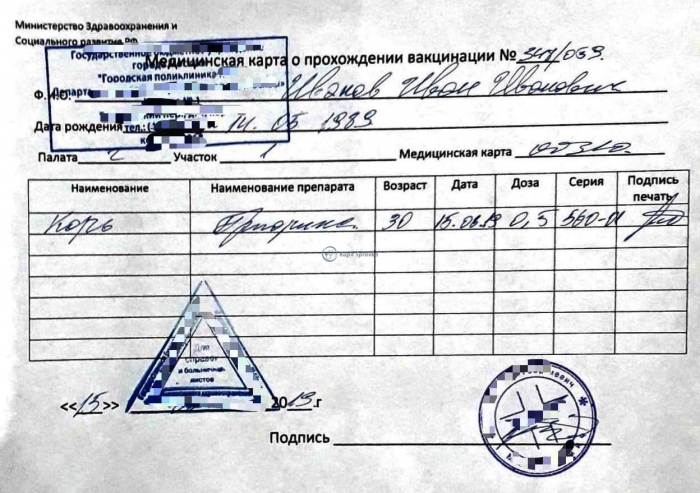 Министерство Здравоохранения и
Социального развития РФ
Государственное
Медицинская карта о прохождении вакцинации №
"Городская поликлиника
Ф. И.О. Иванов Иван Иванович
Дата рождения тел.: 14. 05 1989.
Палата 2 Участок 1 Медицинская карта
Наименование Наименование препарата Возраст Дата Доза Серия Подпись печать
Корь Приорикс. 30 15.06.19 0,5 560-01
Для
справок
и больничных
листов
<<15>> 2019.г
Подпись